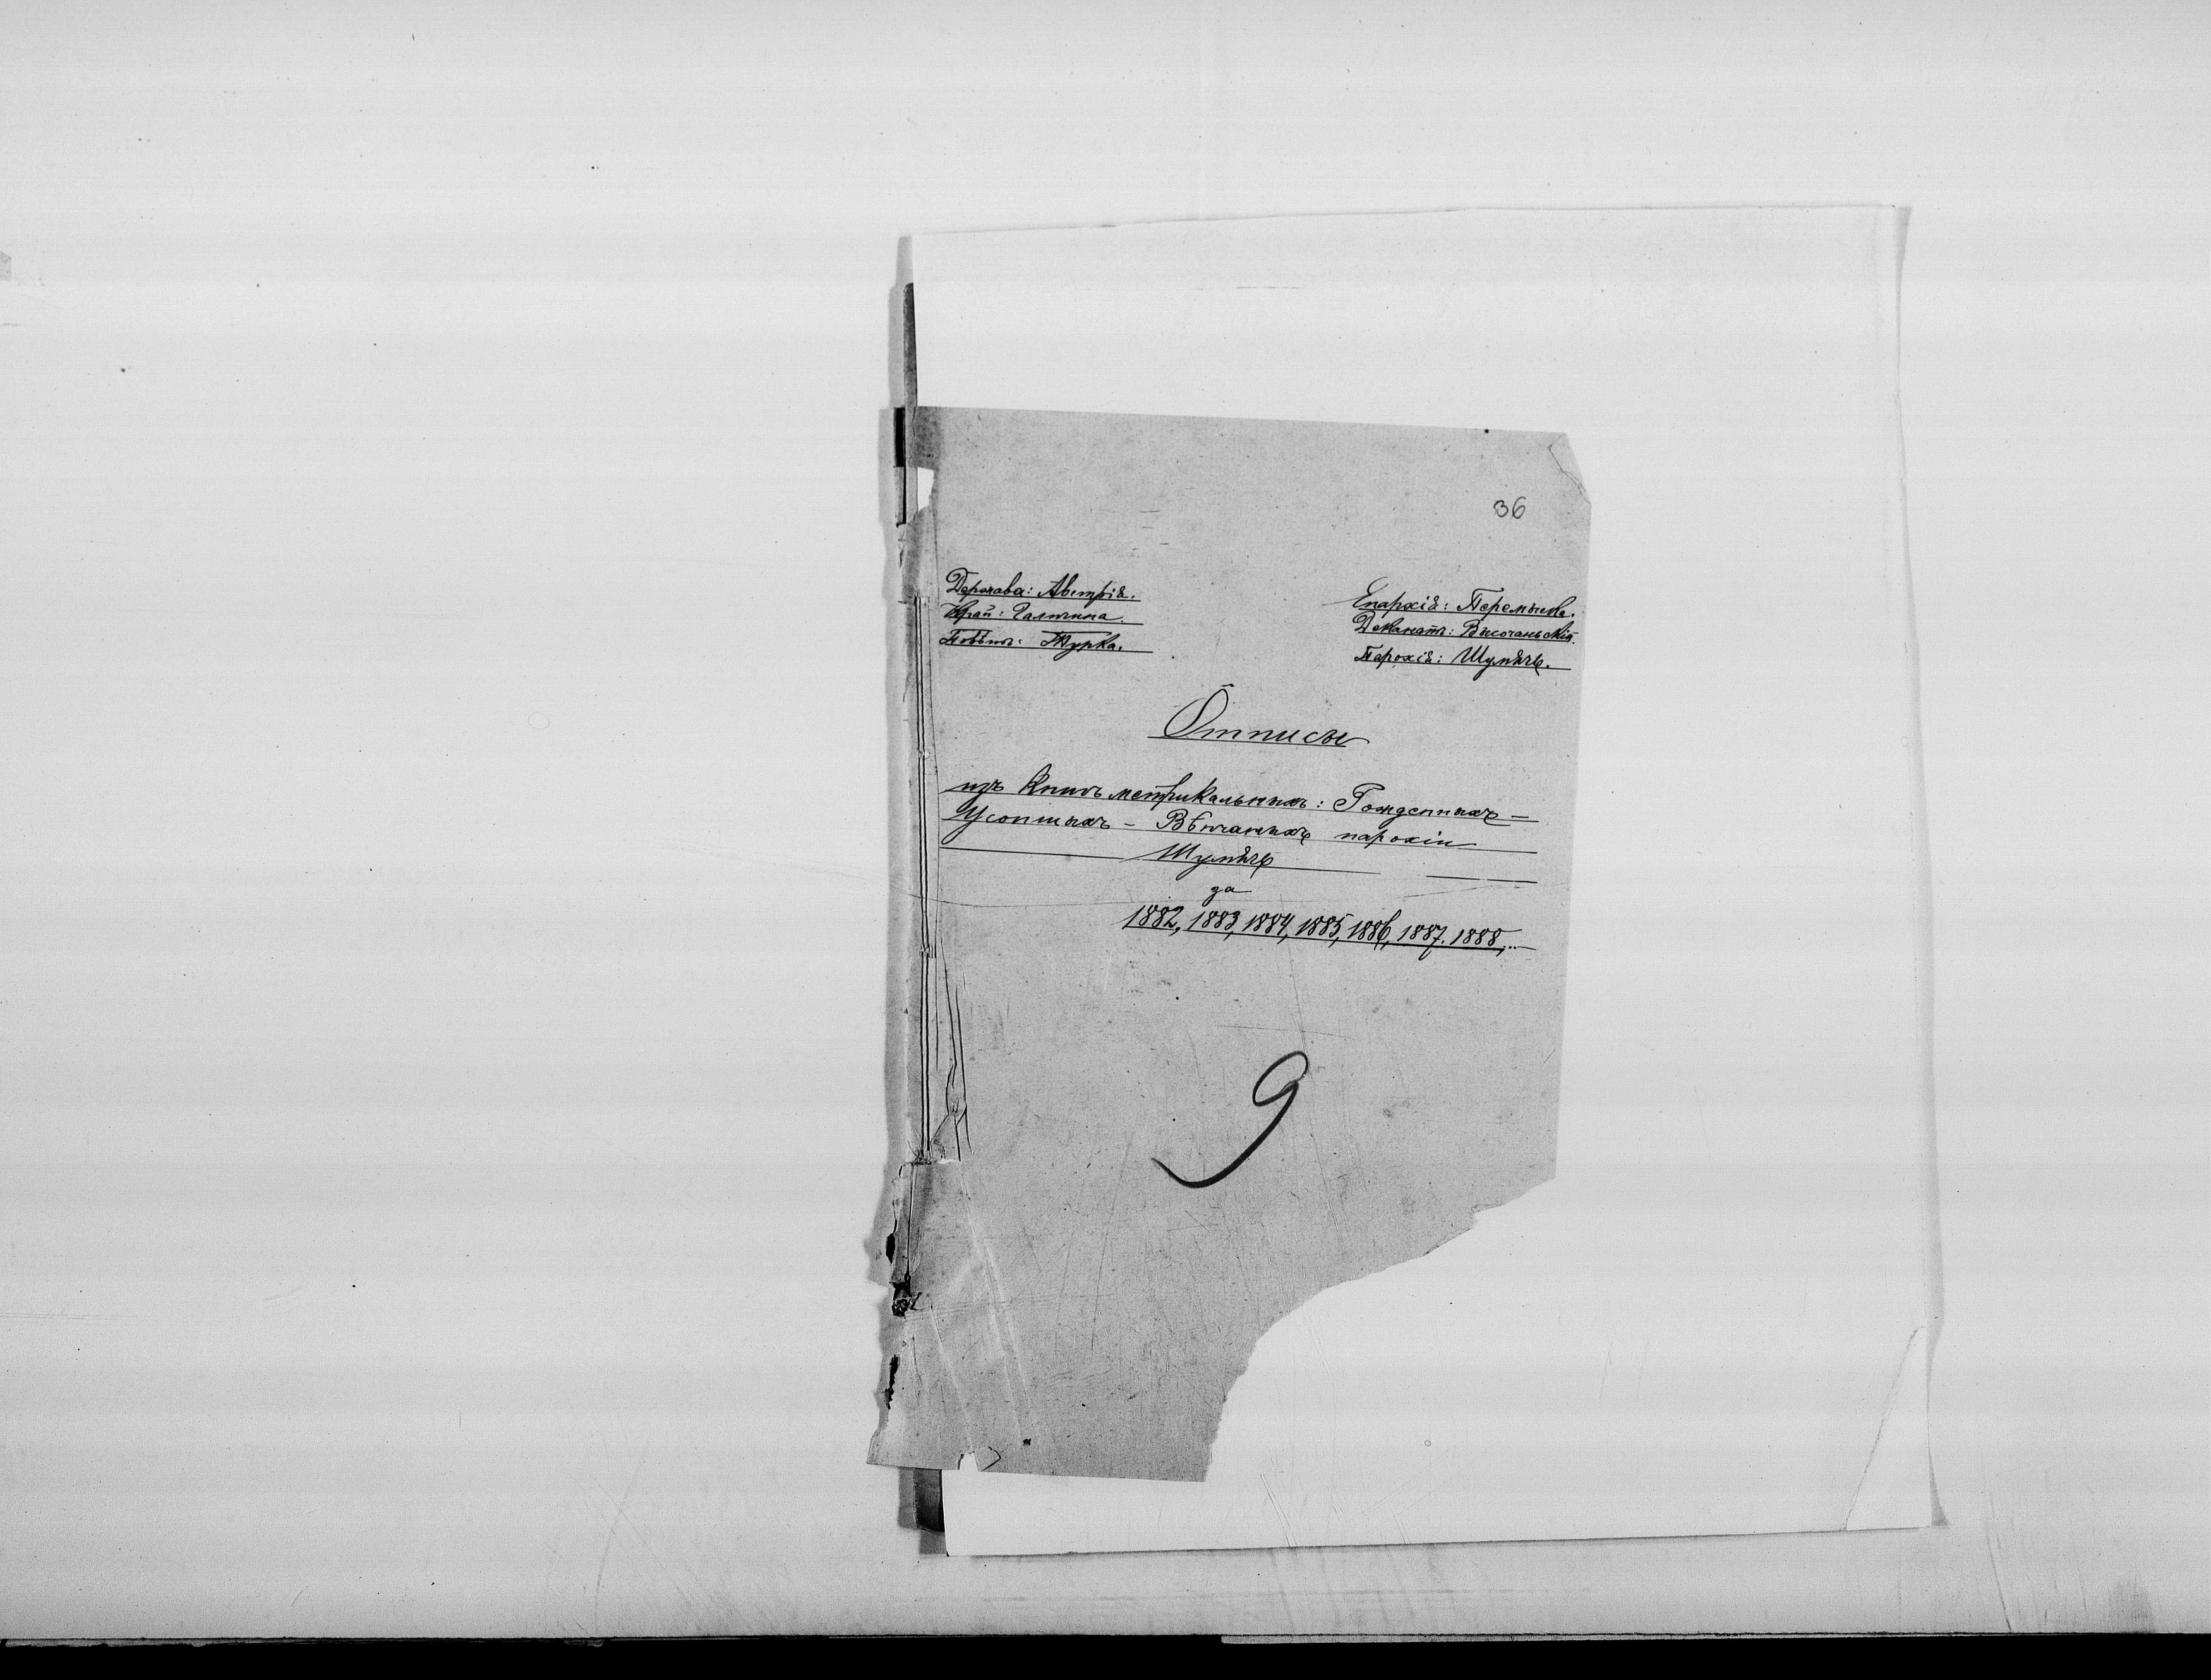 36
Держава: Австрія.
Край: Галичина.
Повѣтъ: Турка.
Епархія: Перемыска.
Деканатъ: Высочаньскій.
Парохія: Шумячь.
Отписы
изъ Книгъ метрикальныхъ: Рожденныхъ –
Усопшихъ – Вѣнчаныхъ парохіи
Шумячь
за
1882, 1883, 1884, 1885, 1886, 1887. 1888,...
9